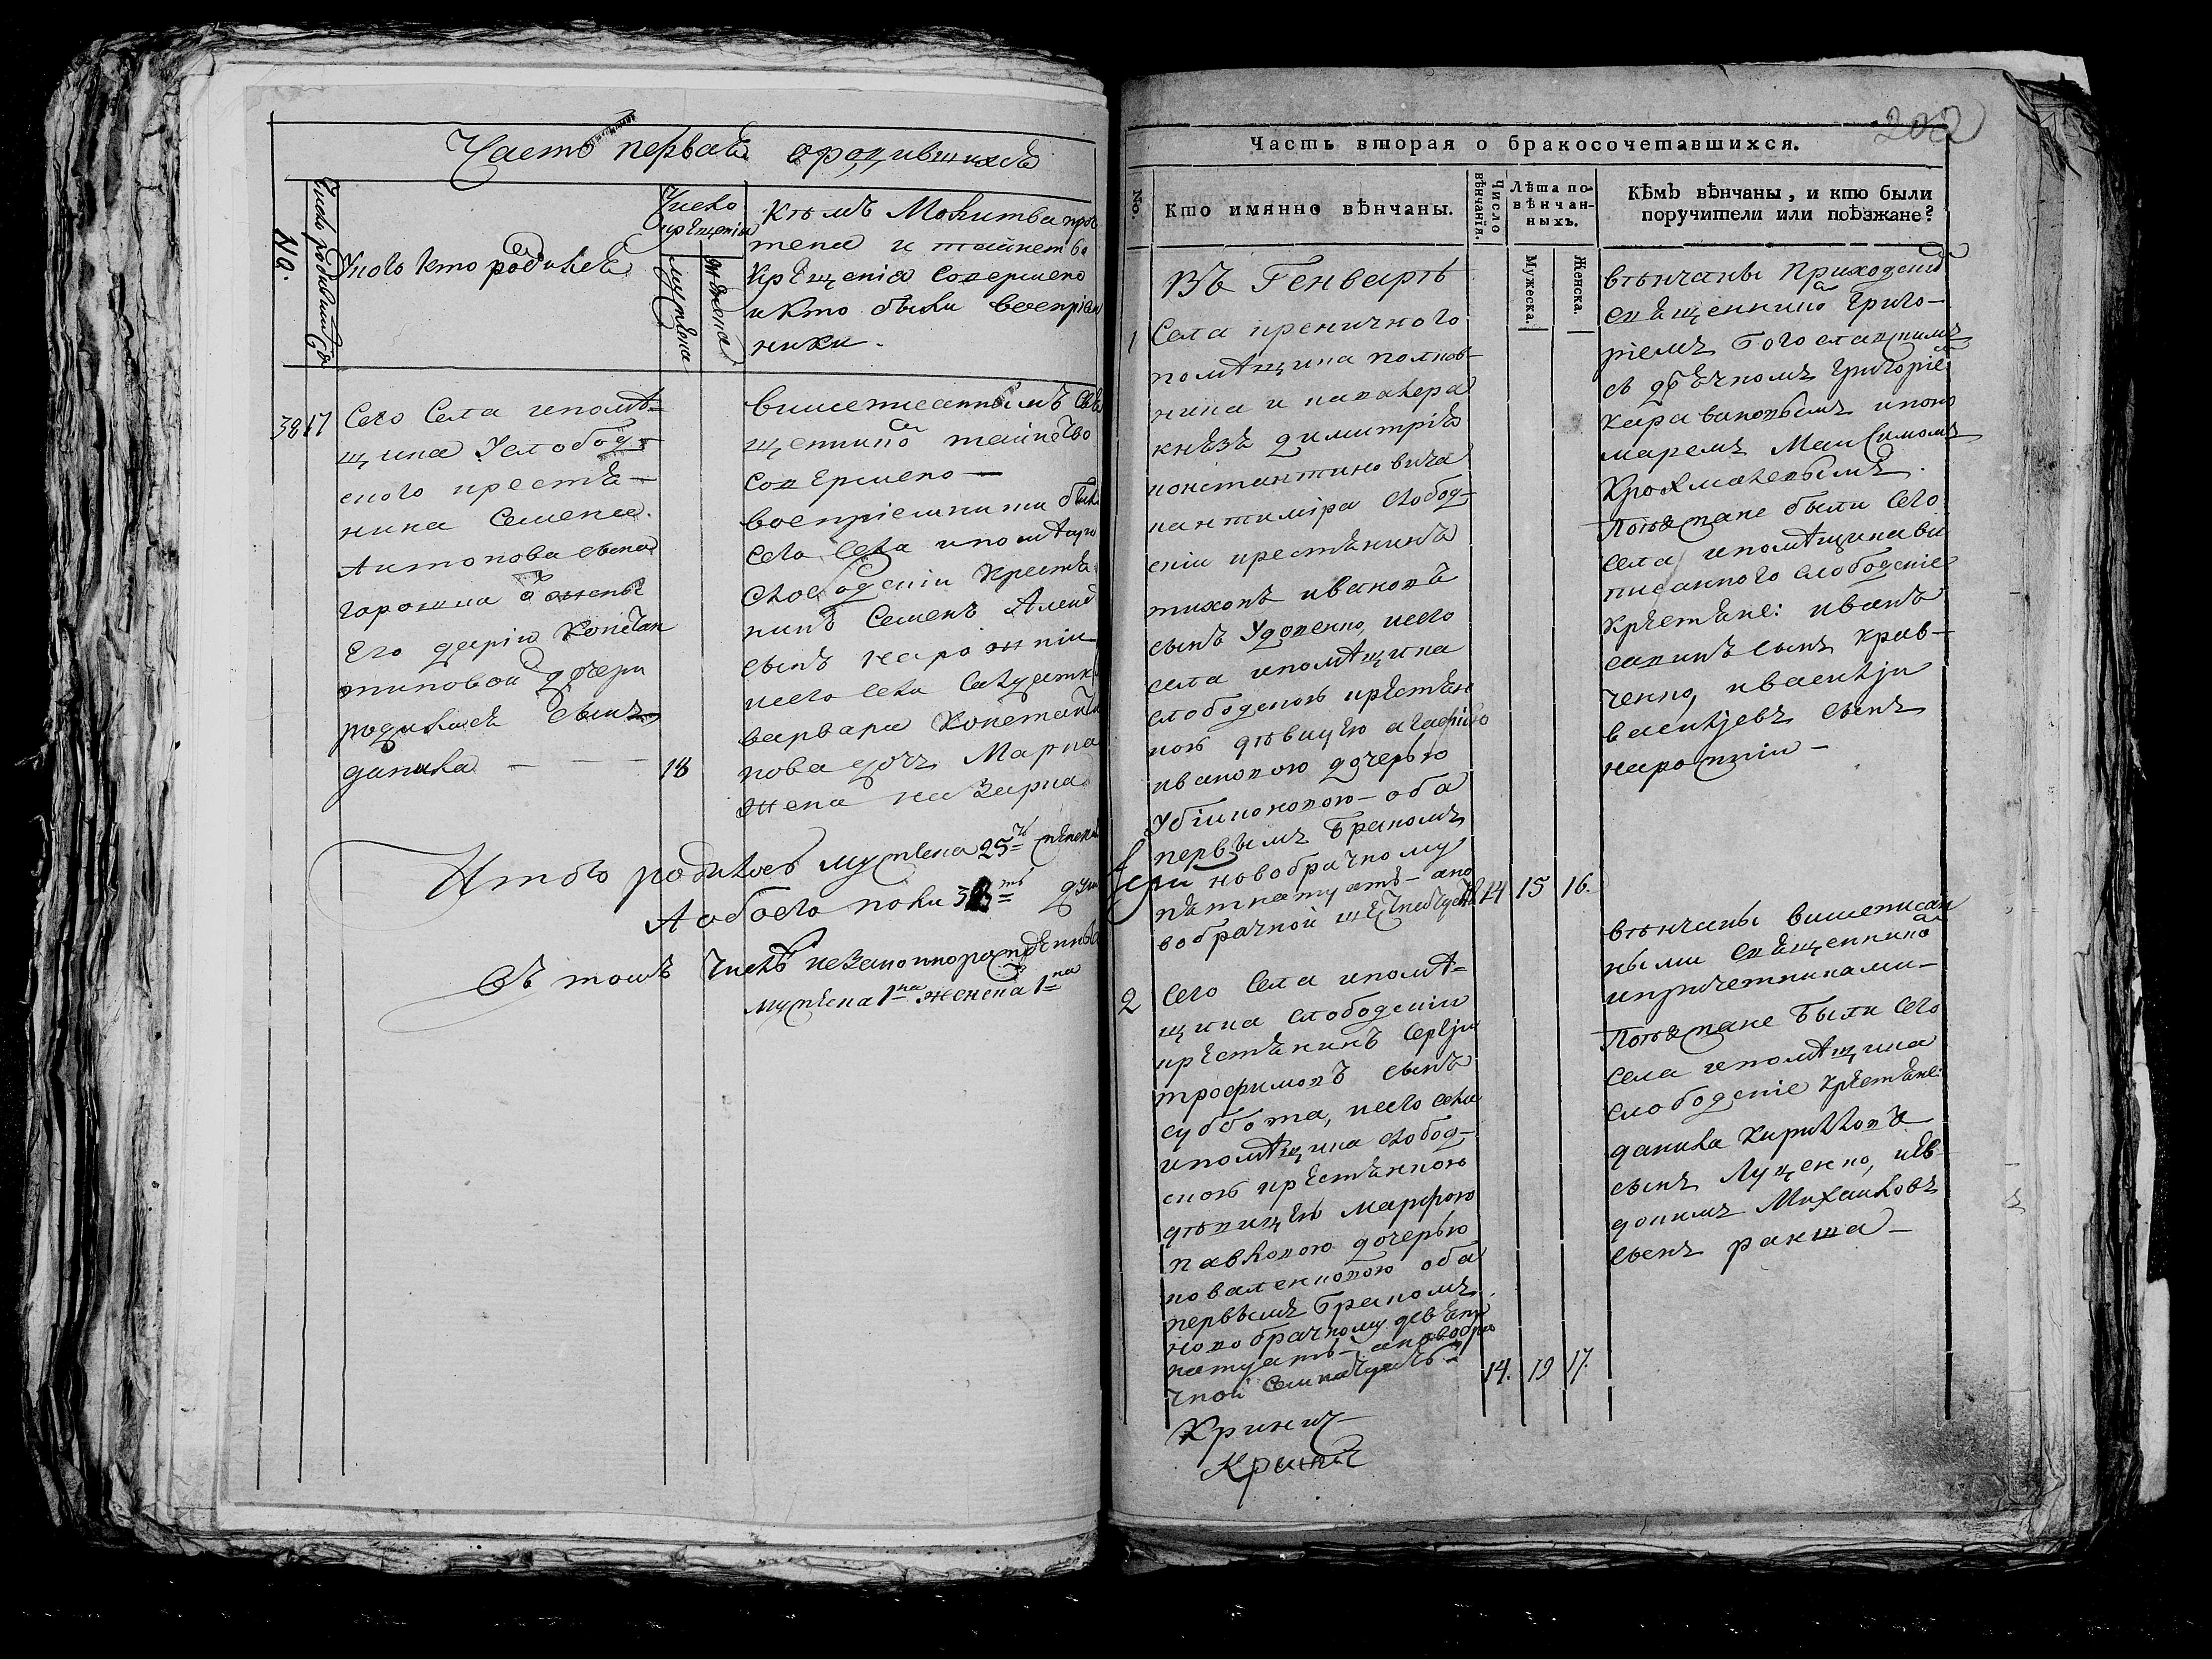 Часть первая о родившихся
No.
Число рождения
У кого кто родился
Число
крещения
мужеска
женска
Кѣмъ Молитва про
тена и таинство
Крещения Совершено
и Кто были восприем
ники.
38 17
Сего Села и помѣ-
щика Услобод-
ского крестя-
нина Семена
Антонова сына
его дарiи Констан
тиновой дочери
родился сынъ
данила — — — 18
вишеписаннымъ Свя
щенникомъ таинство
Совершено —
восприемники были
Сего Села и помѣщи
крестя
нинъ Семенъ
сынъ
и сего Села
варвара Констант
нова дочь
жена
Итого родилось мужеска 25 женска
А обоего пола 38 душ
Въ томъ Числѣ незаконнорожденных
мужеска 1 женска 1
202
Часть вторая о бракосочетавшихся.
No.
Кто имянно вѣнчаны.
Число
вѣнчанiя.
Лѣта по-
вѣнчан-
ныхъ.
Мужеска.
Женска.
Кѣмъ вѣнчаны, и кто были
поручители или поѣзжане?
Въ Генварѣ
1
Села креничного
помѣщика полков-
ника и кавалера
князя димитрiя
константиновича
кантимiра слобод-
скiй крестянинъ
тихонъ ивановъ
сынъ Удовенко, и сего
села и помѣщика
слободскою крестян
кою дѣвицею агафiею
ивановою дочерью
Убiйконовою — оба
первымъ бракомъ
новобрачному
пятнатцать — а но
вобрачной 14 15 16.
вѣнчаны приходскимъ
священникомъ Григо-
рiемъ
съ дячкомъ Григорiе
Каравановымъ и поно
маремъ Максимомъ
Крохмалевымъ.
Поѣзжане были сего
села и помѣщика ви
писанного слободскiе
крестяне: иванъ
савинъ сынъ крав-
ченко, и василiи
василiевъ сынъ
2
Сего Села и помѣ-
щика слободскiи
крестянинъ Сергiи
трофимовъ сынъ
суббота, и сего села
и помѣщика слобод-
скою крестянкою
дѣвицею марфою
павловою дочерью
коваленковою оба
первымъ бракомъ
новобрачному девят
натцать — а новобра
чной семнатцать 14. 19 17.
вѣнчаны вишеписан
ными священникомъ
и причетниками —
Поѣзжане были сего
села и помѣщика
слободскiе крестяне:
данила Кирилловъ
сынъ Луценко, и Ев
докимъ Михаиловъ
сынъ ракша —
Кринич
Кринич